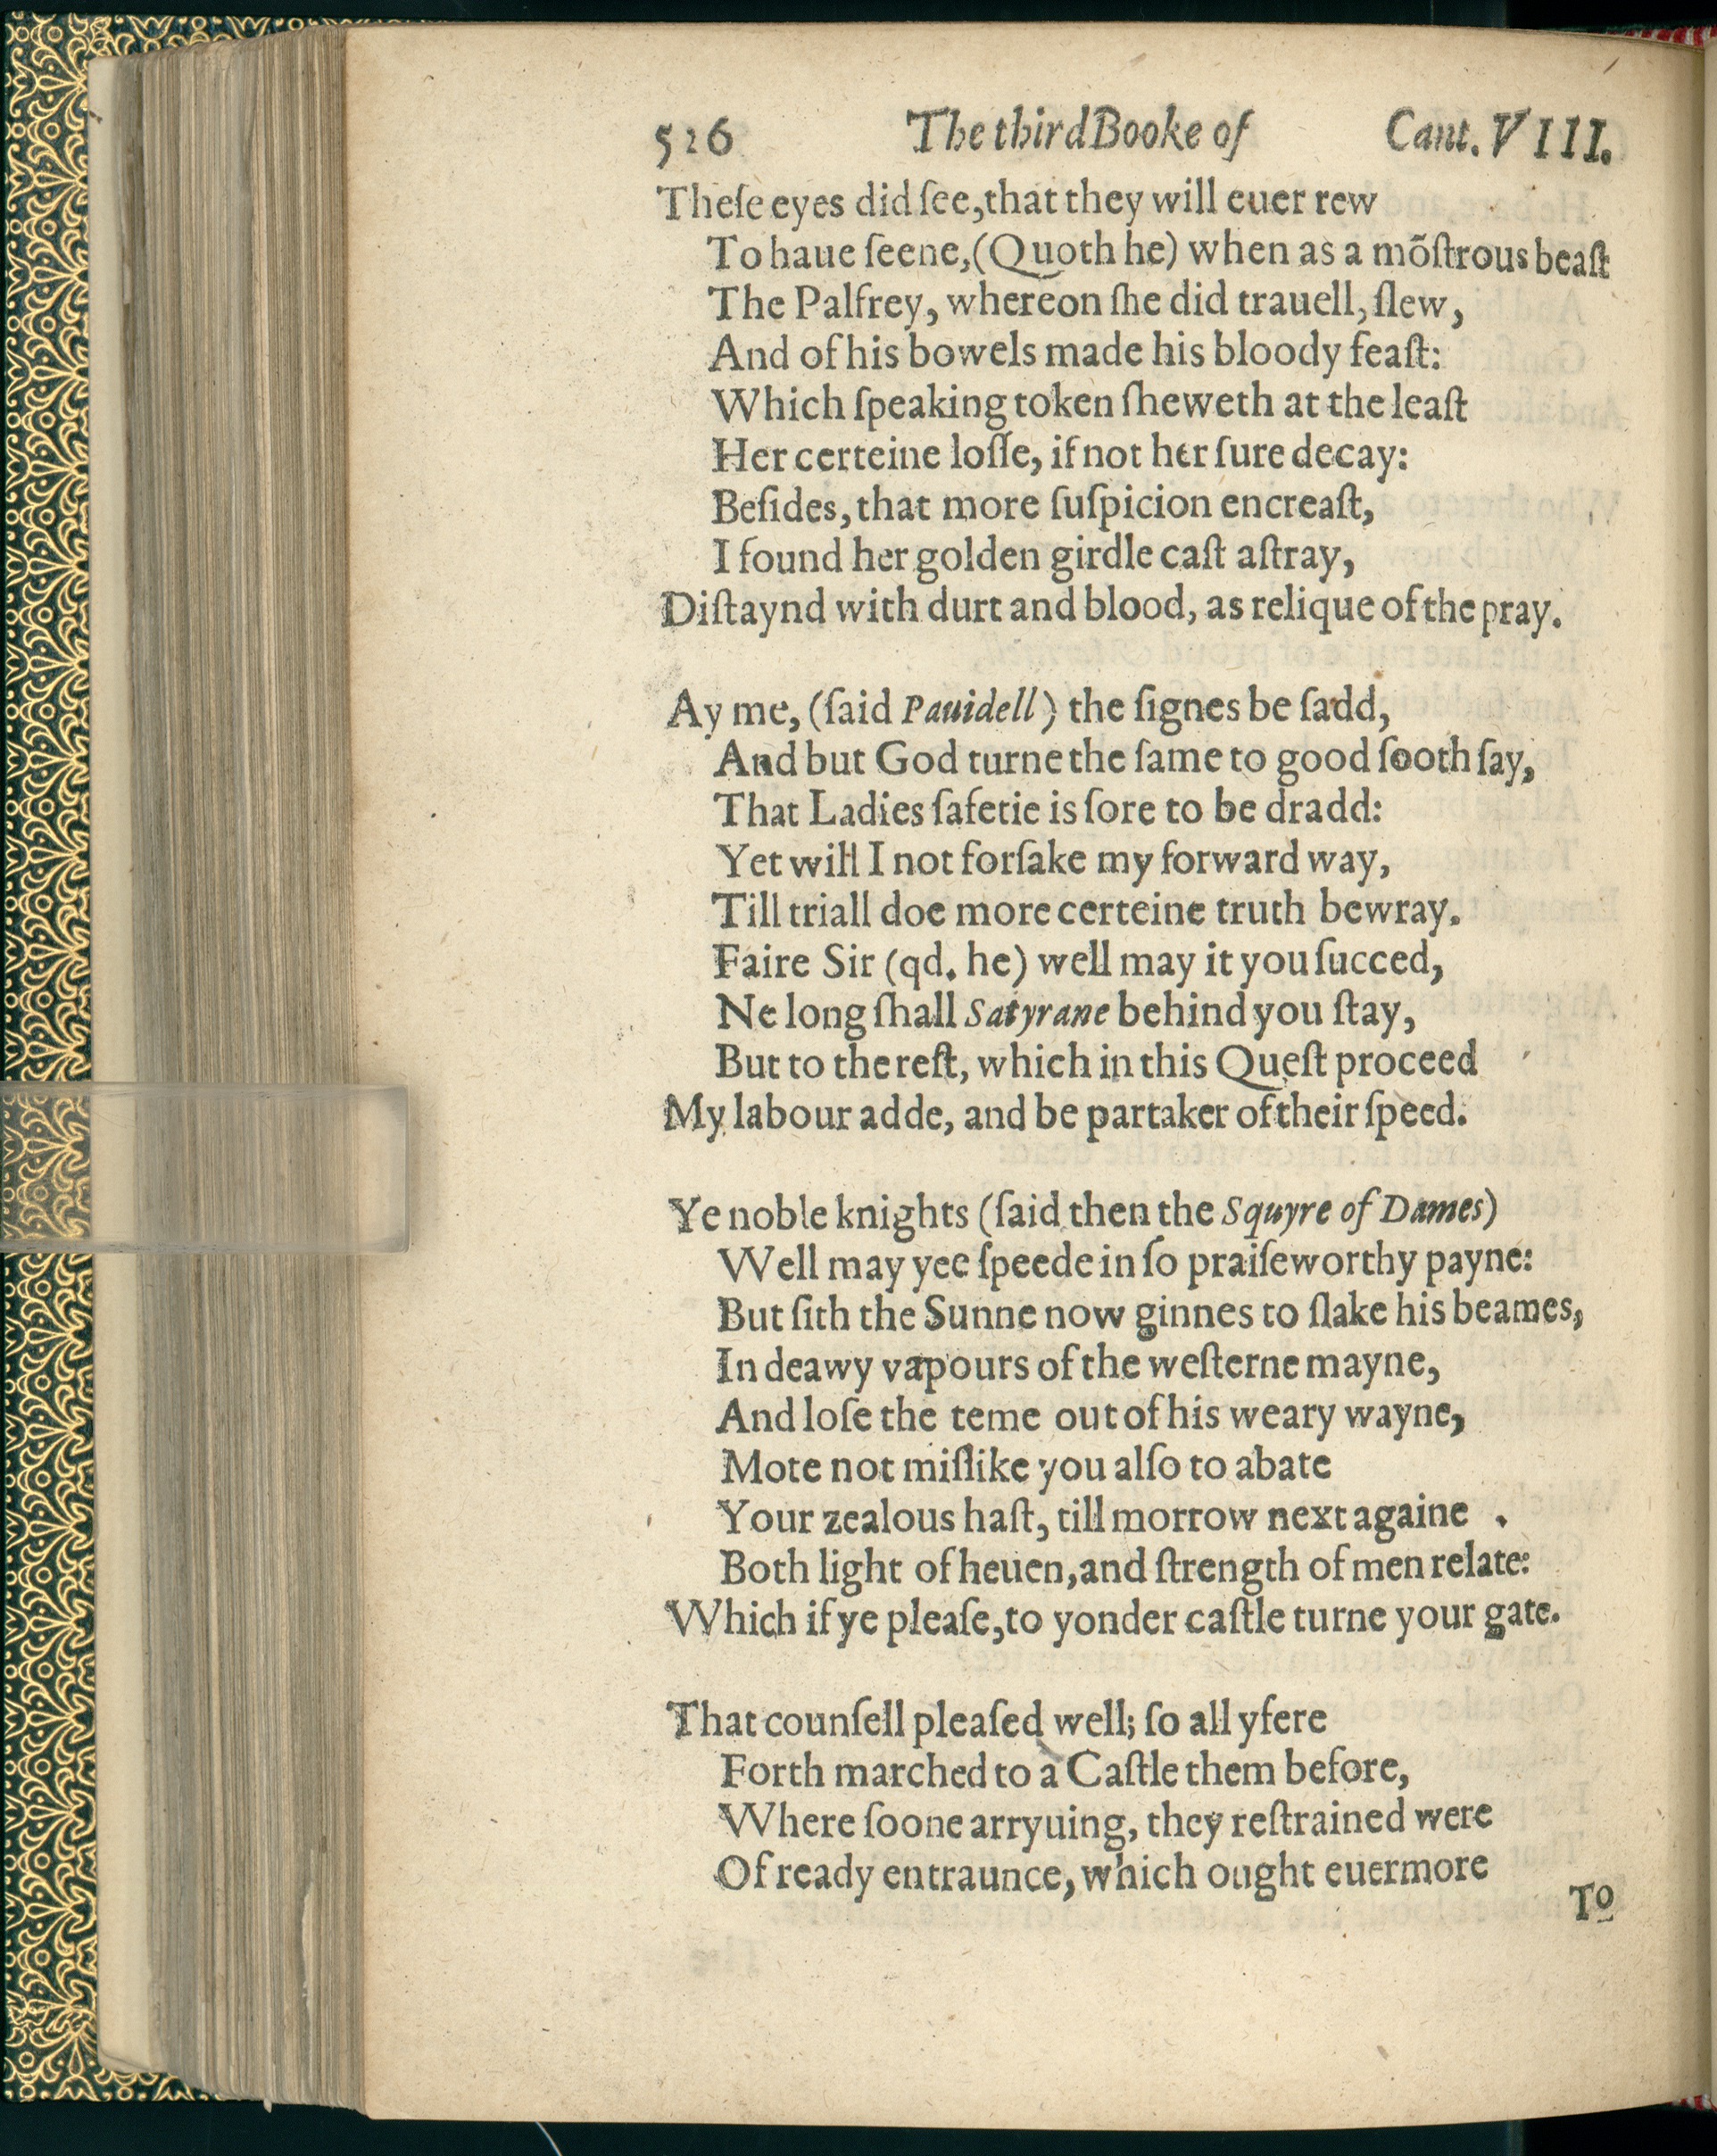 526 The third Booke of Cant. VIII.
Theſe eyes did ſee, that they will euer rew
To haue ſeene, (Quoth he) when as a mõſtrous beaſt
The Palfrey, whereon ſhe did trauell, ſlew,
And of his bowels made his bloody feaſt:
Which ſpeaking token ſheweth at the leaſt
Her certeine loſſe, if not her ſure decay:
Beſides, that more ſuſpicion encreaſt,
I found her golden girdle caſt aſtray,
Diſtaynd with durt and blood, as relique of the pray.
Ay me, (ſaid Pauidell) the ſignes be ſadd,
And but God turne the ſame to good ſooth ſay,
That Ladies ſafetie is ſore to be dradd:
Yet will I not forſake my forward way,
Till triall doe more certeine truth bewray.
Faire Sir (qd. he) well may it you ſucced,
Ne long ſhall Satyrane behind you ſtay,
But to the reſt, which in this Queſt proceed
My labour adde, and be partaker of their ſpeed.
Ye noble knights (ſaid then the Squyre of Dames)
Well may yee ſpeede in ſo praiſeworthy payne:
But ſith the Sunne now ginnes to ſlake his beames,
In deawy vapours of the weſterne mayne,
And loſe the teme out of his weary wayne,
Mote not miſlike you alſo to abate
Your zealous haſt, till morrow next againe .
Both light of heuen, and ſtrength of men relate:
Which if ye pleaſe, to yonder caſtle turne your gate.
That counſell pleaſed well; ſo all yfere
Forth marched to a Caſtle them before,
Where ſoone arryuing, they reſtrained were
Of ready entraunce, which ought euermore
To